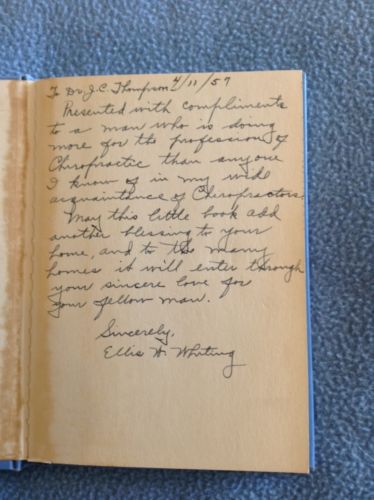 To Dr. J.C. Thompson 4/11/59
Presented with compliments
to a man who is doing
more for the profession of
Chiropractic than anyone
I know of in my wide
acquaintance of Chiropractors.
May this little book add
another blessing to your
home, and to the many
homes it will enter through
your sincere love for
your fellow man.
Sincerely,
Ellis H. Whiting